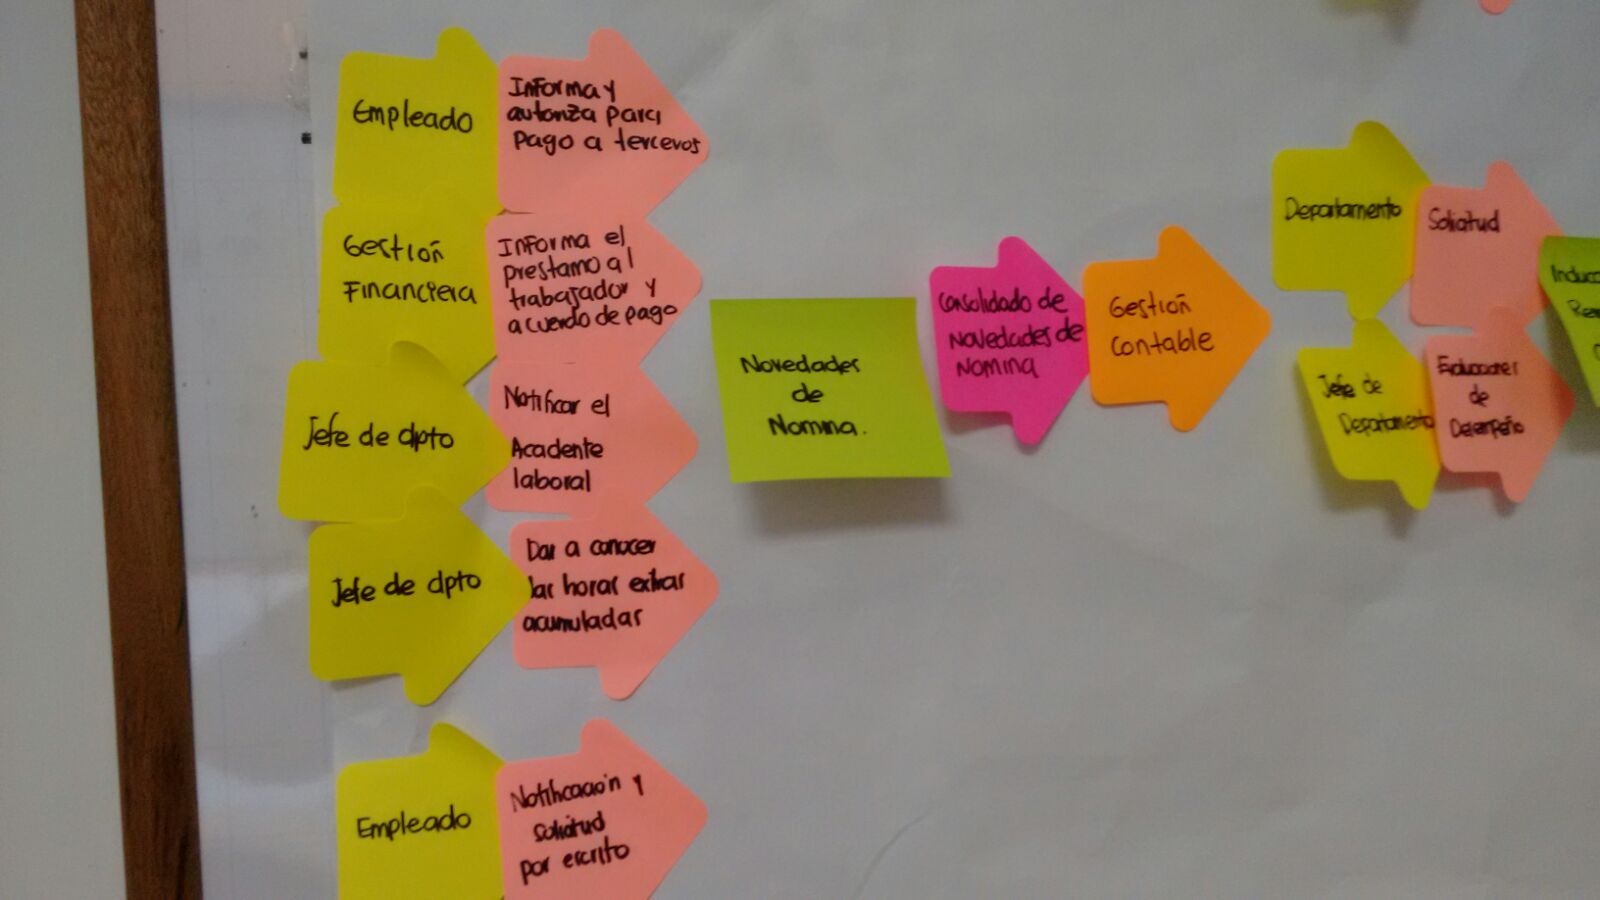 Empleado
Informa y
autoriza para
pago a terceros
Gestión
Financiera
Informa el
prestamo al
trabajador y
acuerdo de pago
Jefe de dpto
Notificar el
Accidente
laboral
Jefe de dpto
Dar a conocer
las horas extras
acumuladas
Empleado
Notificación y
solicitud
por escrito
Novedades
de
Nomina.
Consolidado de
Novedades de
Nomina
Gestión
Contable
Departamento
Solicitud
Jefe de
Departamento
Evaluaciones
de
Desempeño